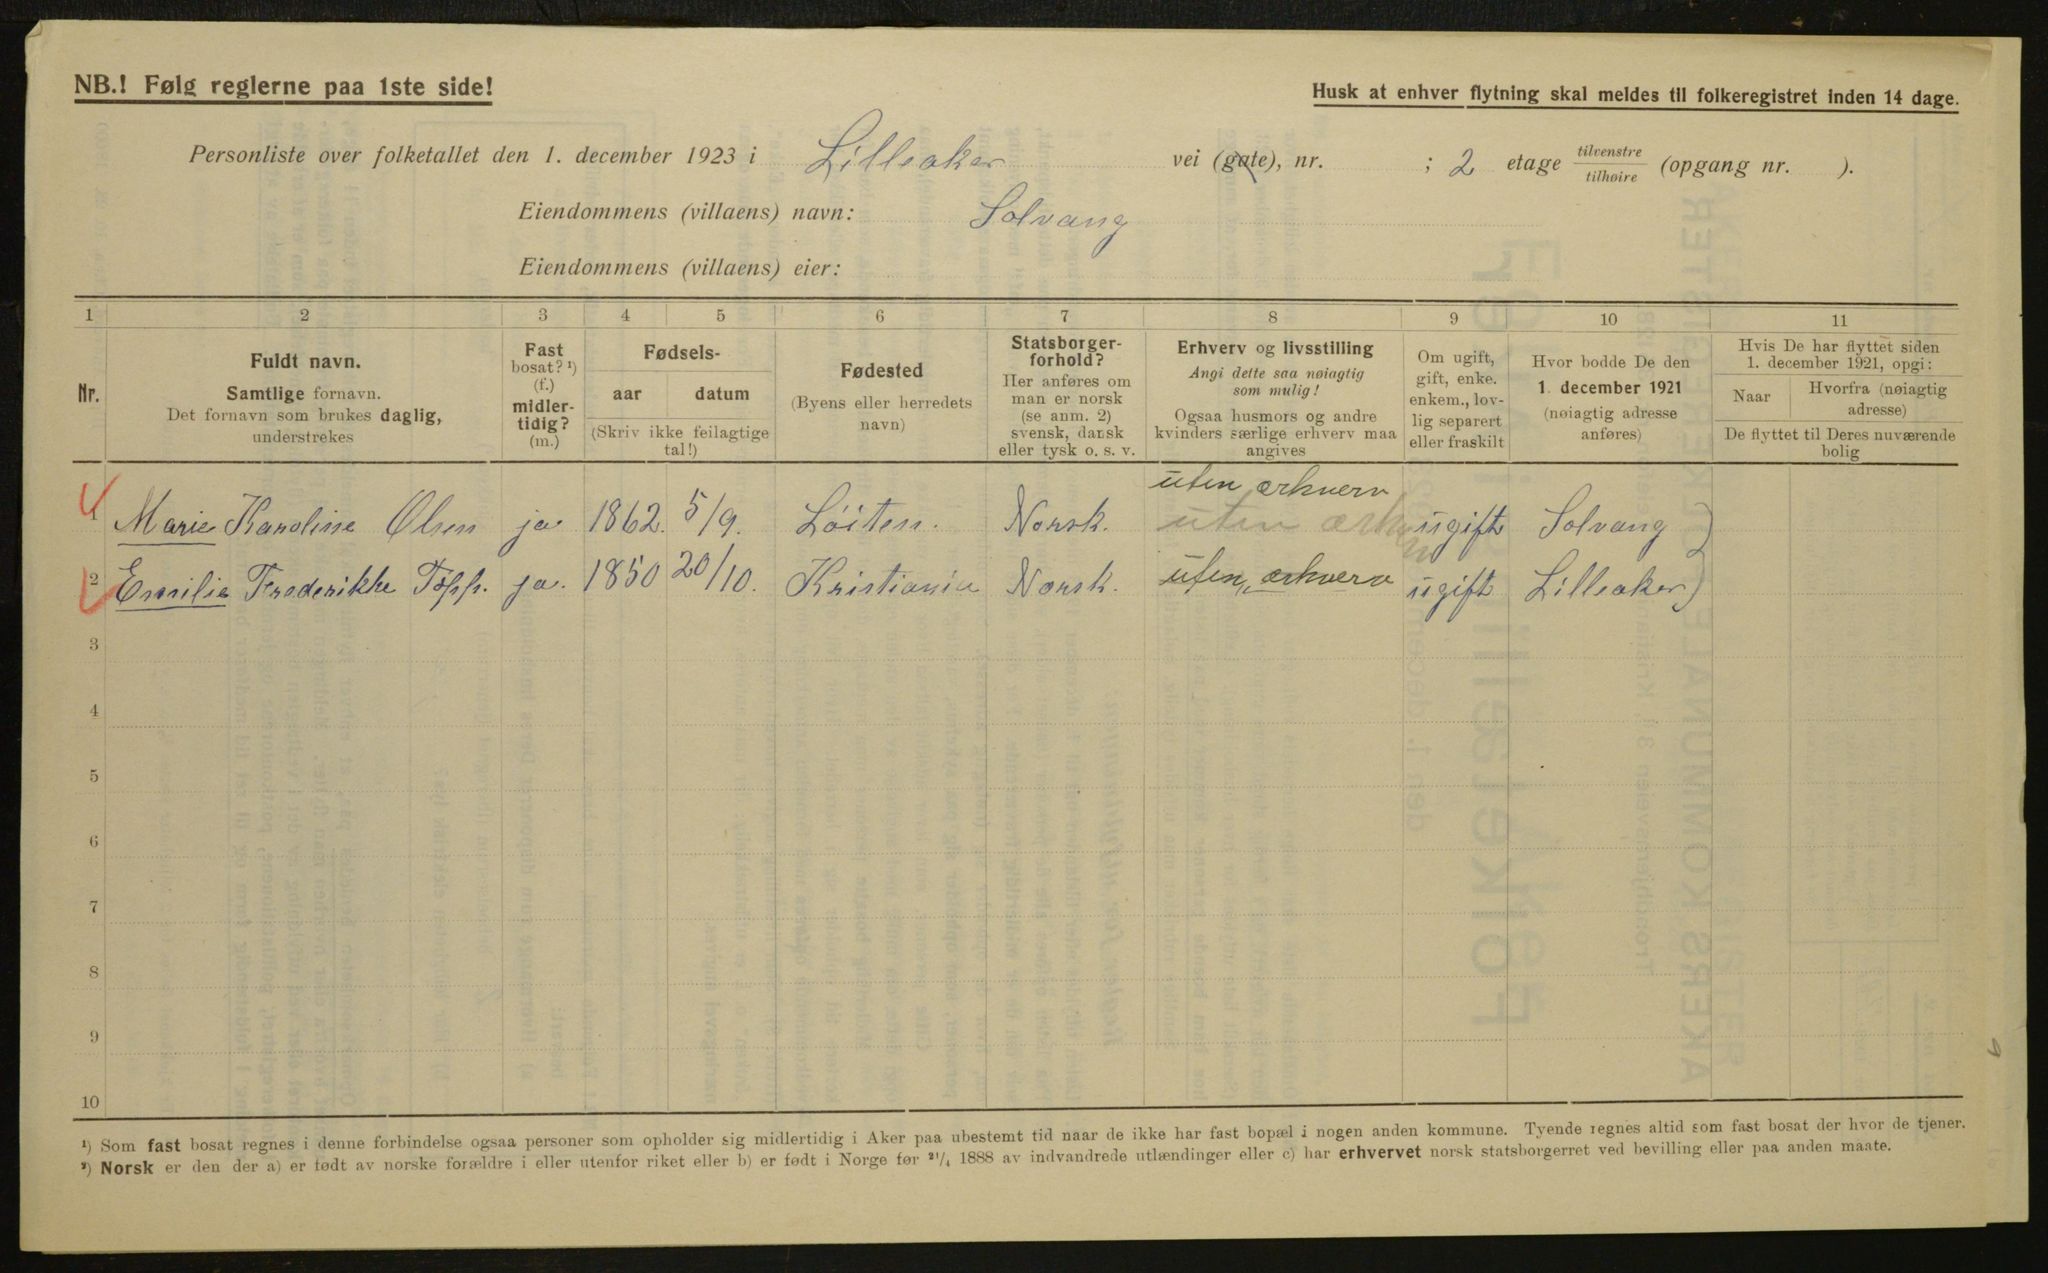 NB.! Følg reglerne paa 1ste side!
Husk at enhver flytning skal meldes til folkeregistret inden 14 dage.
Personliste over folketallet den 1. december 1923 i Lilleaker vei (gate), nr. ; 2 etage tilvenstre/tilhøire (opgang nr. ).
Eiendommens (villaens) navn: Solvang
Eiendommens (villaens) eier:
1 2 3 4 5 6 7 8 9 10 11
Nr.
Fuldt navn.
Samtlige fornavn.
Det fornavn som brukes daglig,
understrekes
Fast
bosat? ¹)
(f.)
midler-
tidig?
(m.)
Fødsels-
aar datum
(Skriv ikke feilagtige
tal!)
Fødested
(Byens eller herredets
navn)
Statsborger-
forhold?
Her anføres om
man er norsk
(se anm. 2)
svensk, dansk
eller tysk o. s. v.
Erhverv og livsstilling
Angi dette saa nøiagtig
som mulig!
Ogsaa husmors og andre
kvinders særlige erhverv maa
angives
Om ugift,
gift, enke.
enkem., lov-
lig separert
eller fraskilt
Hvor bodde De den
1. december 1921
(nøiagtig adresse
anføres)
Hvis De har flyttet siden
1. december 1921, opgi:
Naar Hvorfra (nøiagtig
adresse)
De flyttet til Deres nuværende
bolig
uten ærhverv
1 Marie Karoline Olsen ja 1862. 5/9. Löiten. Norsk. uten ærhverv ugift Solvang
2 Emilie Frederikke Töpp. ja. 1850 20/10. Kristiania Norsk. uten ærhverv ugift Lilleaker
3
4
5
6
7
8
9
10
¹) Som fast bosat regnes i denne forbindelse ogsaa personer som opholder sig midlertidig i Aker paa ubestemt tid naar de ikke har fast bopæl i nogen anden kommune. Tyende regnes altid som fast bosat der hvor de tjener.
²) Norsk er den der a) er født av norske forældre i eller utenfor riket eller b) er født i Norge før ²¹/₄ 1888 av indvandrede utlændinger eller c) har erhvervet norsk statsborgerret ved bevilling eller paa anden maate.